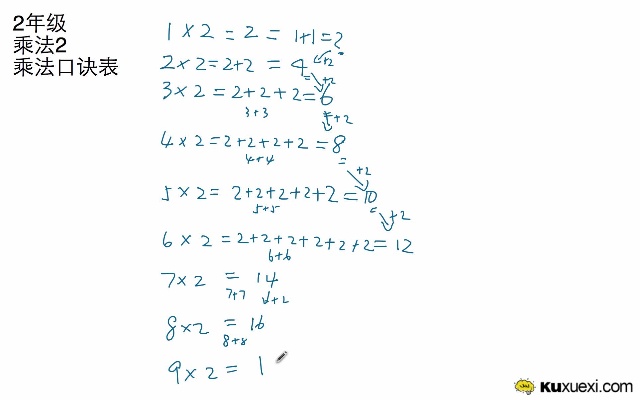 2年级
乘法2
乘法口诀表
1 × 2 = 2 = 1+1=2
2 × 2 = 2+2 = 4 +2
+2
3 × 2 = 2+2+2=6
3+3
+2
4 × 2 = 2+2+2+2=8
4+4
+2
5 × 2 = 2+2+2+2+2=10
5+5
+2
6 × 2 = 2+2+2+2+2+2= 12
6+6
7×2 = 14
7+7
8×2 = 16
8+8
9×2 = 1
Kuxuexi.com